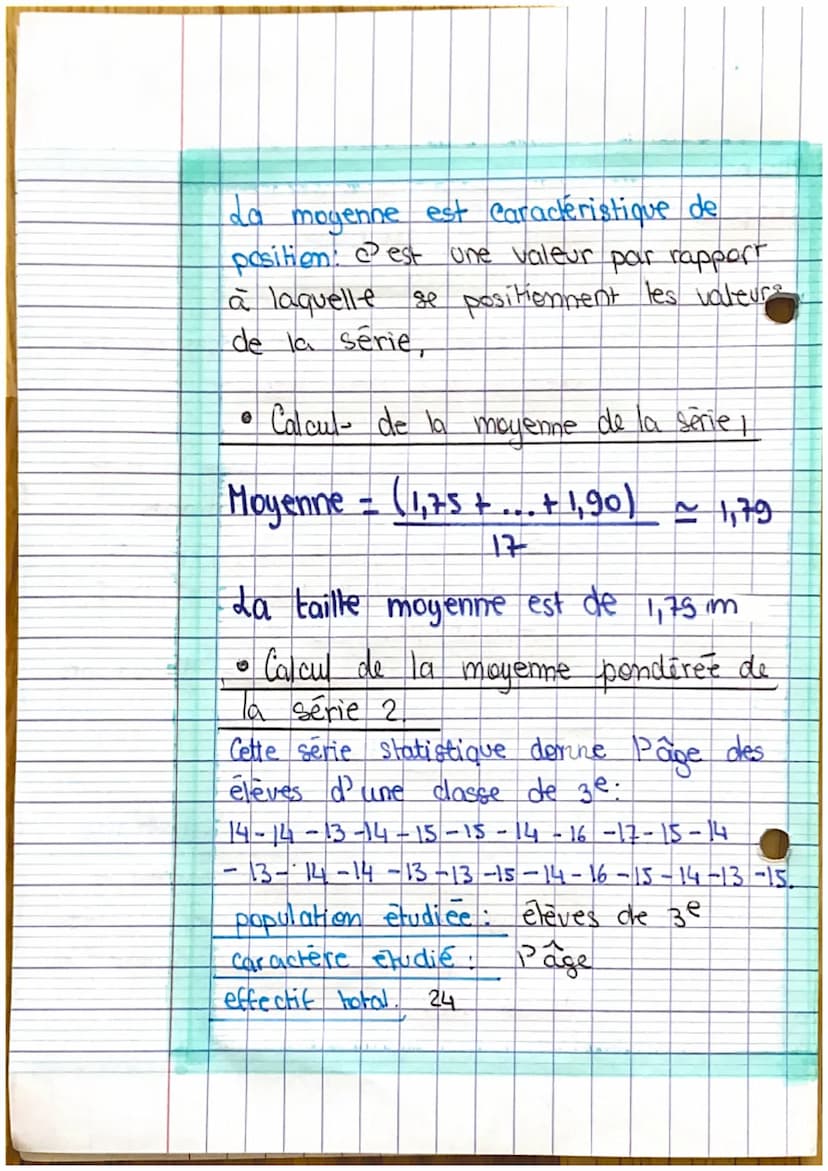 La moyenne est caractéristique de
position: c'est une valeur par rapport
à laquelle se positionnent les valeurs
de la série,
• Calcul de la moyenne de la série 1
Moyenne = (1,75 + ... + 1,90) ≃ 1,79
17
La taille moyenne est de 1,79 m
• Calcul de la moyenne pondérée de
la série 2.
Cette série statistique donne l'âge des
élèves d'une classe de 3e:
14 - 14 - 13 - 14 - 15 - 15 - 14 - 16 - 17 - 15 - 14
- 13 - 14 - 14 - 13 - 13 - 15 - 14 - 16 - 15 - 14 - 13 - 15.
population étudiée : élèves de 3e
caractère étudié : l'âge
effectif total. 24